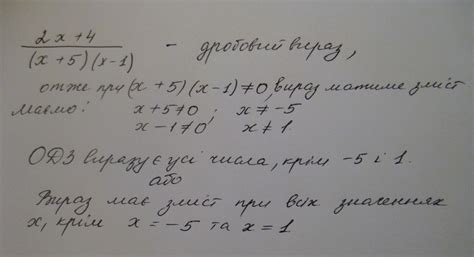 2x+4
(x+5)(x-1) - дробовий вираз,
отже при (x+5)(x-1)≠0, вираз матиме зміст
маємо: x+5≠0; x≠-5
x-1≠0, x≠1
ОДЗ виразу є усі числа, крім -5 і 1.
або
Вираз має зміст при всіх значеннях
x, крім x=-5 та x=1